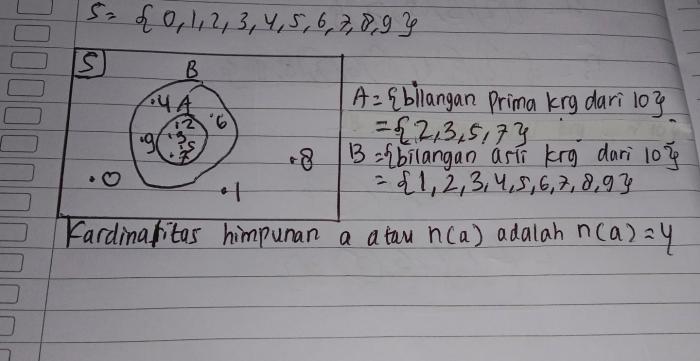 S = { 0,1,2,3,4,5,6,7,8,9 }
S
B
.4 A
.2 .6
.9 .3
.5
.7
.8
.0
.1
A = {bilangan prima krg dari 10}
= {2,3,5,7}
B = {bilangan asli krg dari 10}
= {1,2,3,4,5,6,7,8,9}
Kardinalitas himpunan a atau n(a) adalah n(a) = 4